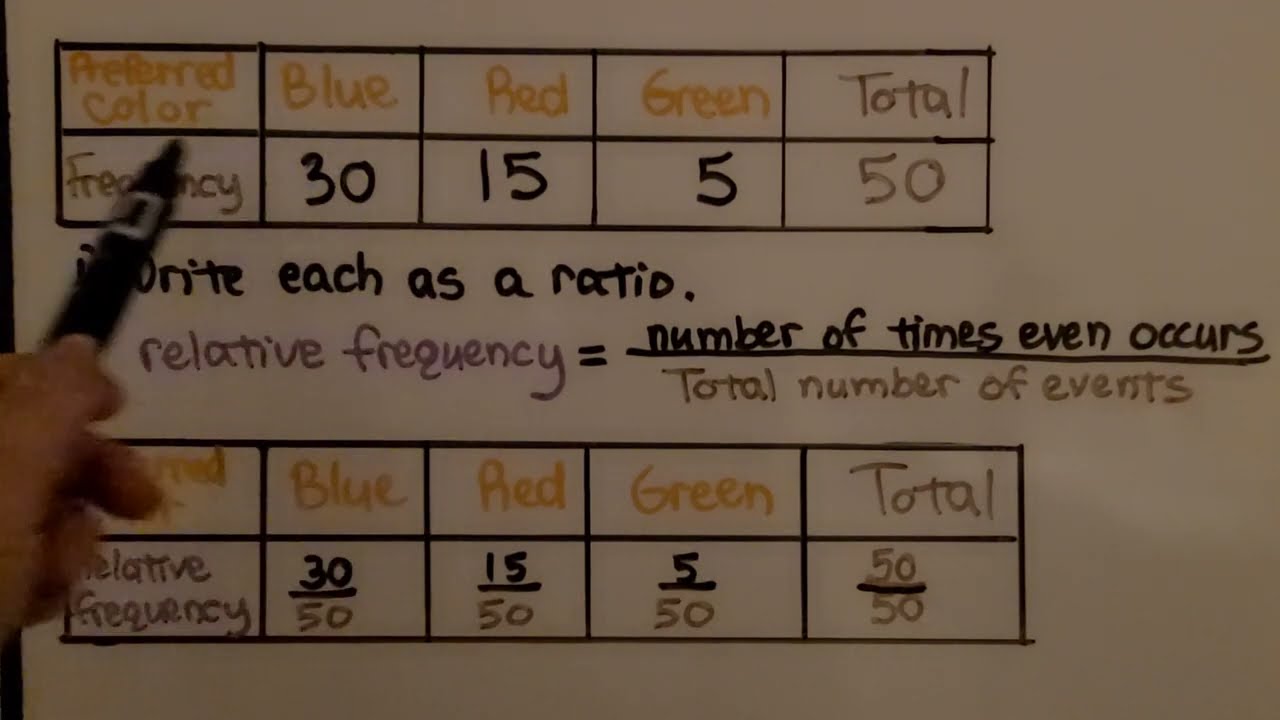 Preferred Blue Red Green Total
Color
30 15 5 50
each as a ratio.
relative frequency = number of times even occurs
Total number of events
Blue Red Green Total
relative 30 15 5 50
frequency 50 50 50 50